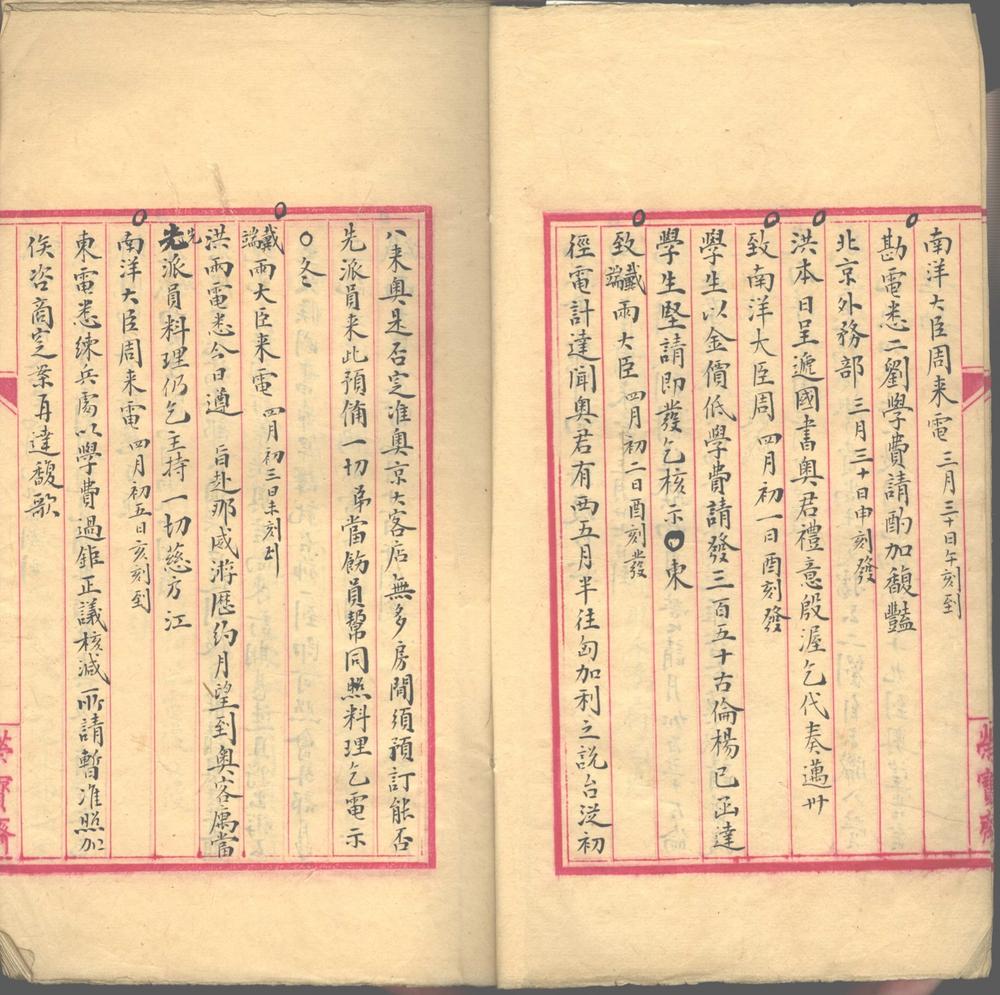 南洋大臣周来電 三月三十日午刻到
勘電悉二劉學費請酌加馥豔
北京外務部 三月三十日申刻發
洪本日呈遞國書奧君禮意殷渥乞代奏邁卅
致南洋大臣周 四月初一日酉刻發
學生以金價低學費請發三百五十古倫楊已函達
學生堅請即發乞核示 東
致戴端兩大臣 四月初二日酉刻發
徑電計達聞奧君有西五月半往匈加利之説台從初
八来奧是否定准奧京大客店無多房間須預訂能否
先派員来此預備一切弟當飭員幫同照料理乞電示
冬
戴端兩大臣来電 四月初三日未刻到
洪兩電悉今日遵 旨赴那威游歷約月望到奧客寓當
先先派員料理仍乞主持一切慈方江
南洋大臣周来電 四月初五日亥刻到
東電悉練兵處以學費過鉅正議核減所請暫准照加
俟咨商定案再達馥歌
榮寶齋
榮寶齋